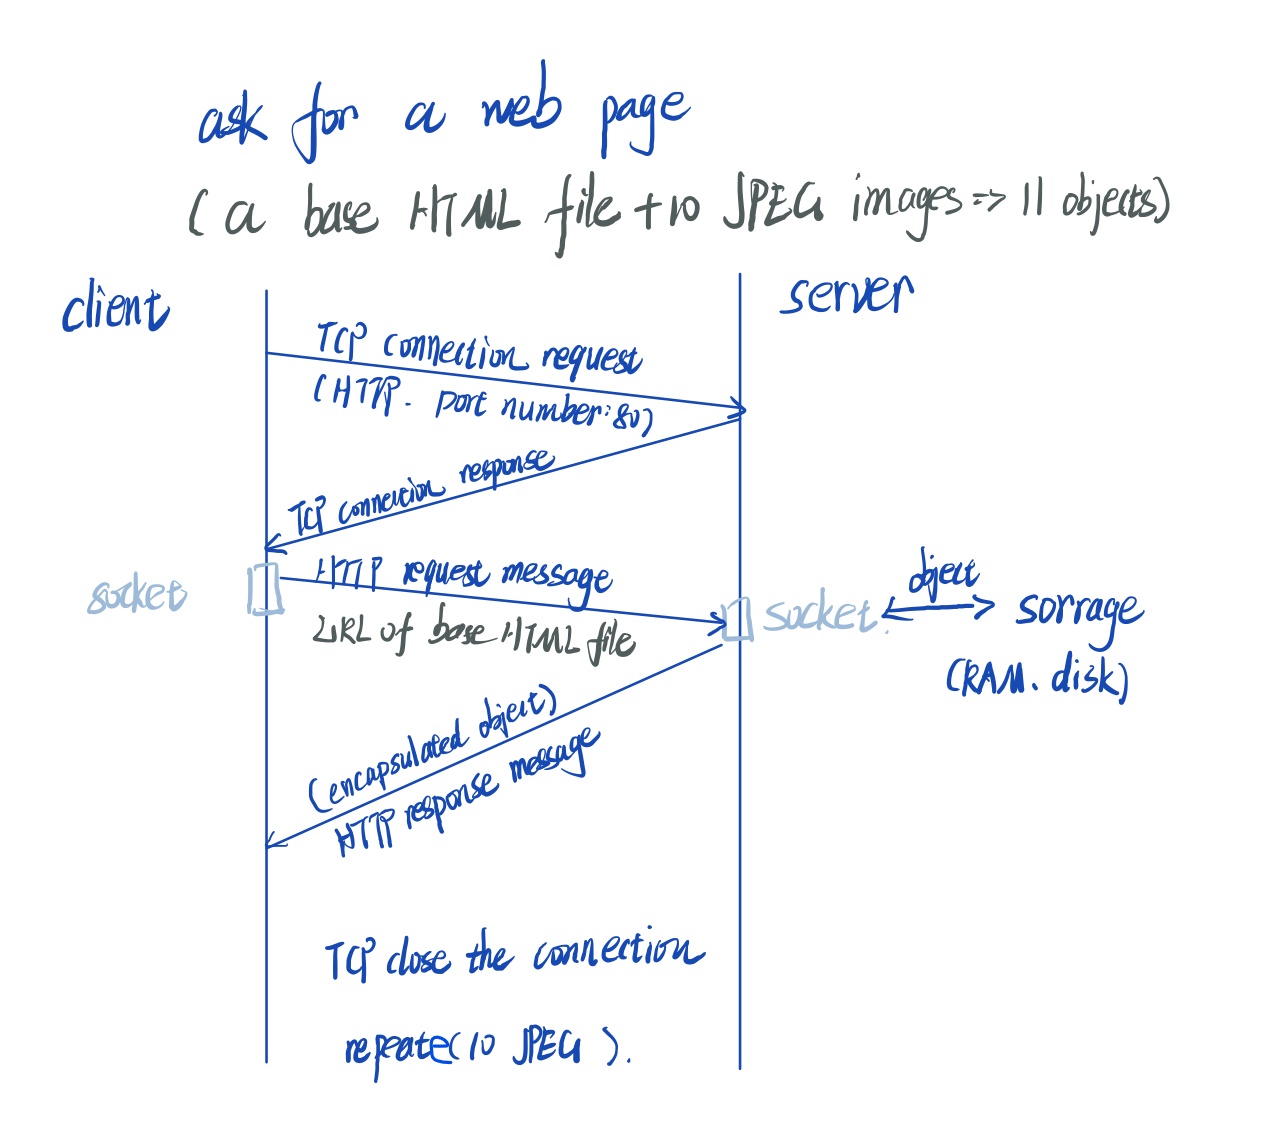 ask for a web page
( a base HTML file + 10 JPEG images => 11 objects)
client
server
TCP connection request
(HTTP. port number:80)
TCP connection response
socket
HTTP request message
URL of base HTML file
socket.
object
sorrage
(RAM. disk)
(encapsulated object)
HTTP response message
TCP close the connection
repeate(10 JPEG ).